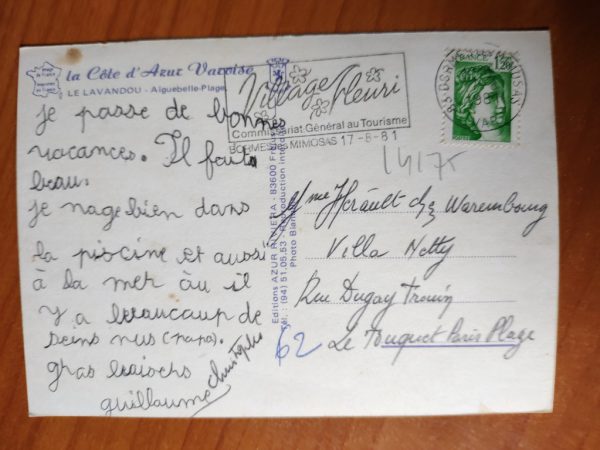 la Côte d'Azur Varoise
LE LAVANDOU - Aiguebelle-Plage
je passe de bonnes
vacances. Il fait
beau.
je nage bien dans
la piscine et aussi
à la mer où il
y a beaucoup de
seins nus (papa).
gros baisers
guillaume christophe
Editions AZUR RIVIERA - 83600 Fréjus
Tél. : (94) 51.05.53 - Reproduction interdite
Photo
Village Fleuri
Commissariat Général au Tourisme
BORMES LES MIMOSAS 17-8-81
FRANCE
1,20
VAR
14175
Mme Hérault chez Warembourg
Villa Netty
Rue Dugay Trouin
62 Le Touquet Paris Plage